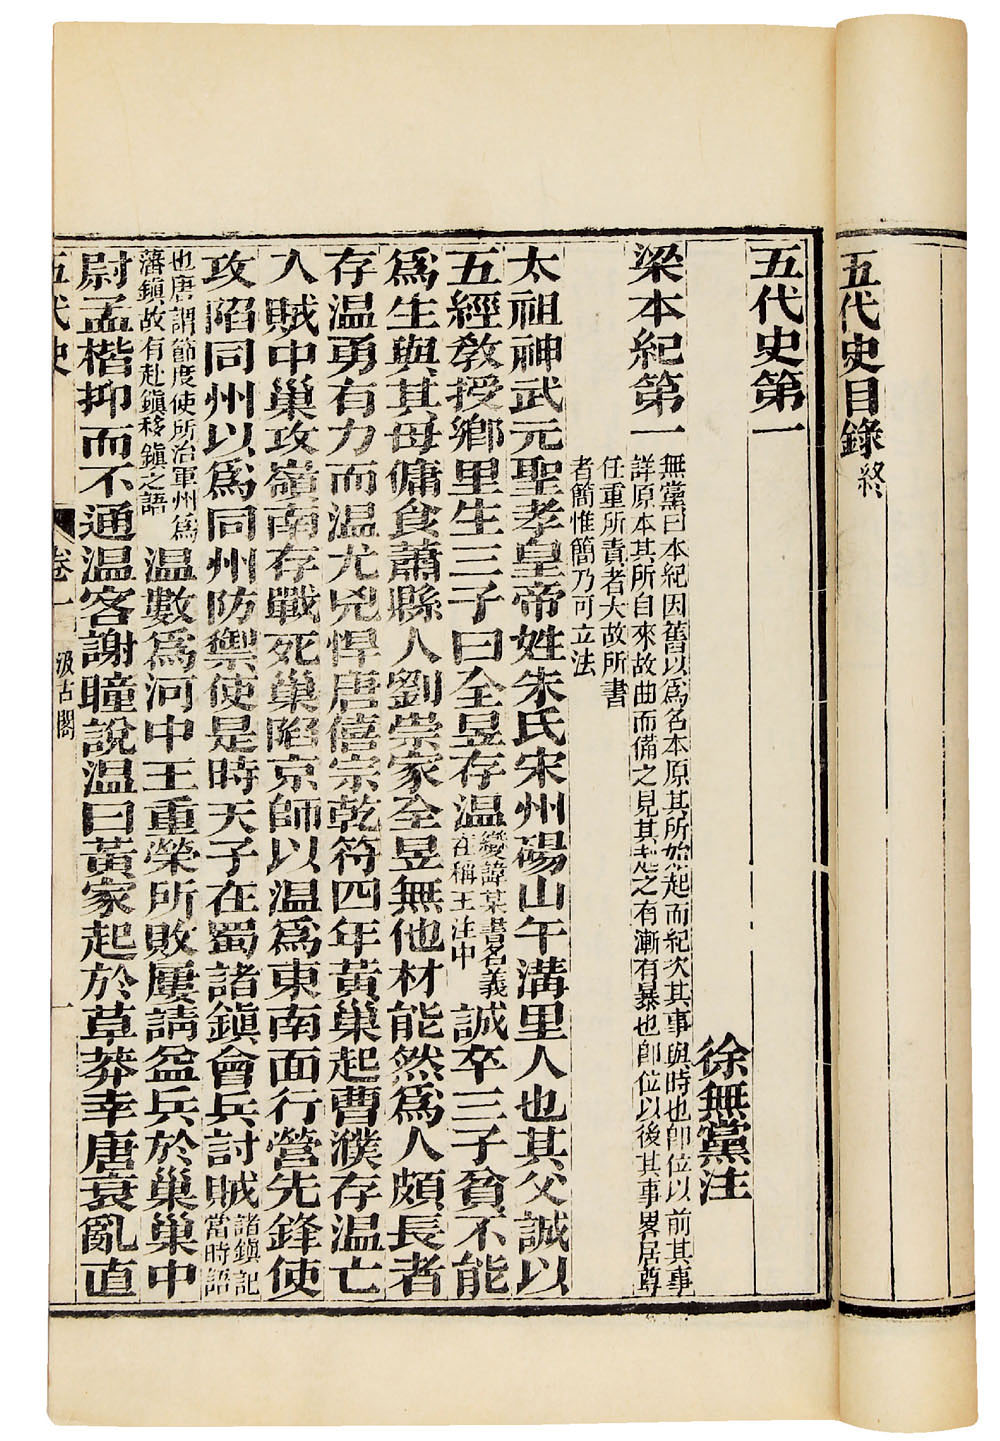 五代史目錄終
五代史第一
徐無黨注
梁本紀第一
無黨曰本紀因舊以為名本原其所始起而紀次其事與時也即位以前其事
詳原本其所自來故曲而備之見其起之有漸有暴也即位以後其事畧居尊
任重所責者大故所書
者簡惟簡乃可立法
太祖神武元聖孝皇帝姓朱氏宋州碭山午溝里人也其父誠以
五經教授鄉里生三子曰全昱存温變諱某書名義在稱王注中誠卒三子貧不能
為生與其母傭食蕭縣人劉崇家全昱無他材能然為人頗長者
存温勇有力而温尤兇悍唐僖宗乾符四年黃巢起曹濮存温亡
入賊中巢攻嶺南存戰死巢陷京師以温為東南面行營先鋒使
攻陷同州以為同州防禦使是時天子在蜀諸鎮會兵討賊諸鎮記當時語
也唐謂節度使所治軍州為藩鎮故有赴鎮移鎮之語温數為河中王重榮所敗屢請益兵於巢巢中
尉孟楷抑而不通温客謝瞳說温曰黃家起於草莽幸唐衰亂直
五代史 卷一 汲古閣 一